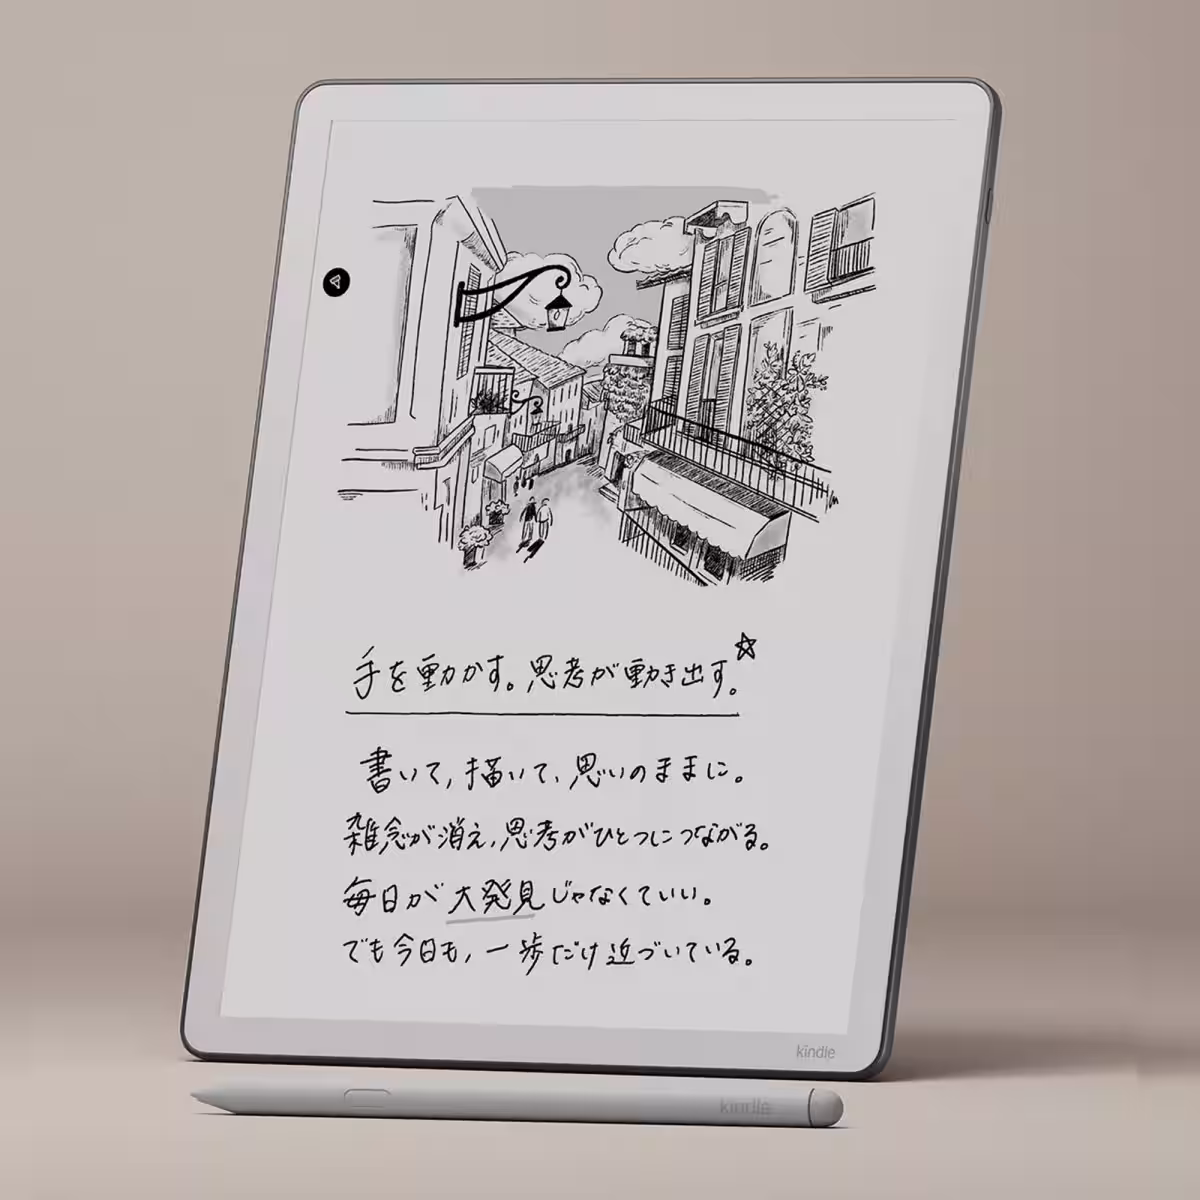 手を動かす。思考が動き出す。
書いて、描いて、思いのままに。
雑念が消え、思考がひとつにつながる。
毎日が大発見じゃなくていい。
でも今日も、一歩だけ近づいている。
kindle
kindle